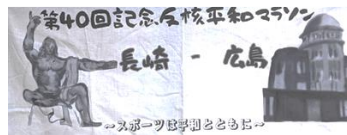 第40回記念反核平和マラソン
長崎 - 広島
~スポーツは平和とともに~